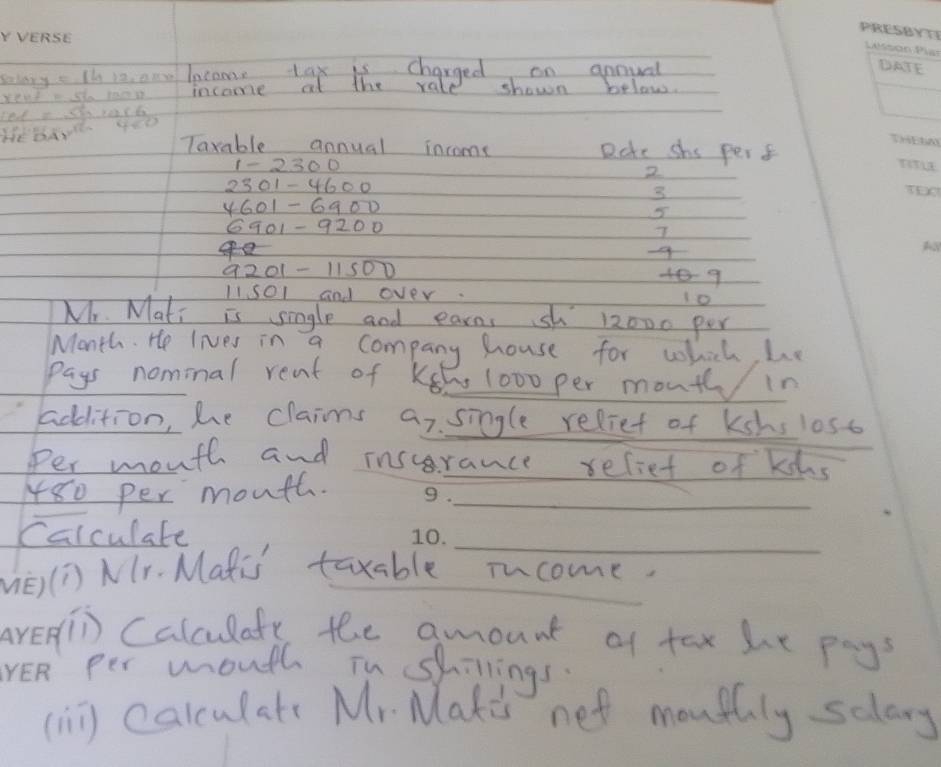 Y VERSE
PRESBYTE
Lesson Plan
DATE
salary = sh 12,000
rent = sh 1000
HE DAY 480
Income tax is Charged on annual
income at the rate shown below.
THEME
TITLE
TEXT
Taxable annual income Rate shs per £
1 - 2300 2
2301 - 4600 3
4601 - 6900 5
6901 - 9200 7
9201 - 11500 9
11501 and over. 10
Mr. Mati is single and earns sh 12000 per
Month. He lives in a company house for which he
Pays nominal rent of Kshs 1000 per month / in
addition, he claims a 7. single relief of Kshs 1056
Per month and ins 8. urance relief of Kshs
480 per month. 9.
Calculate 10.
ME) (i) Mr. Mati's taxable income.
AYER (ii) Calculate the amount of tax he pays
YER per month in shillings.
(iii) Calculate Mr. Mati's net monthly salary